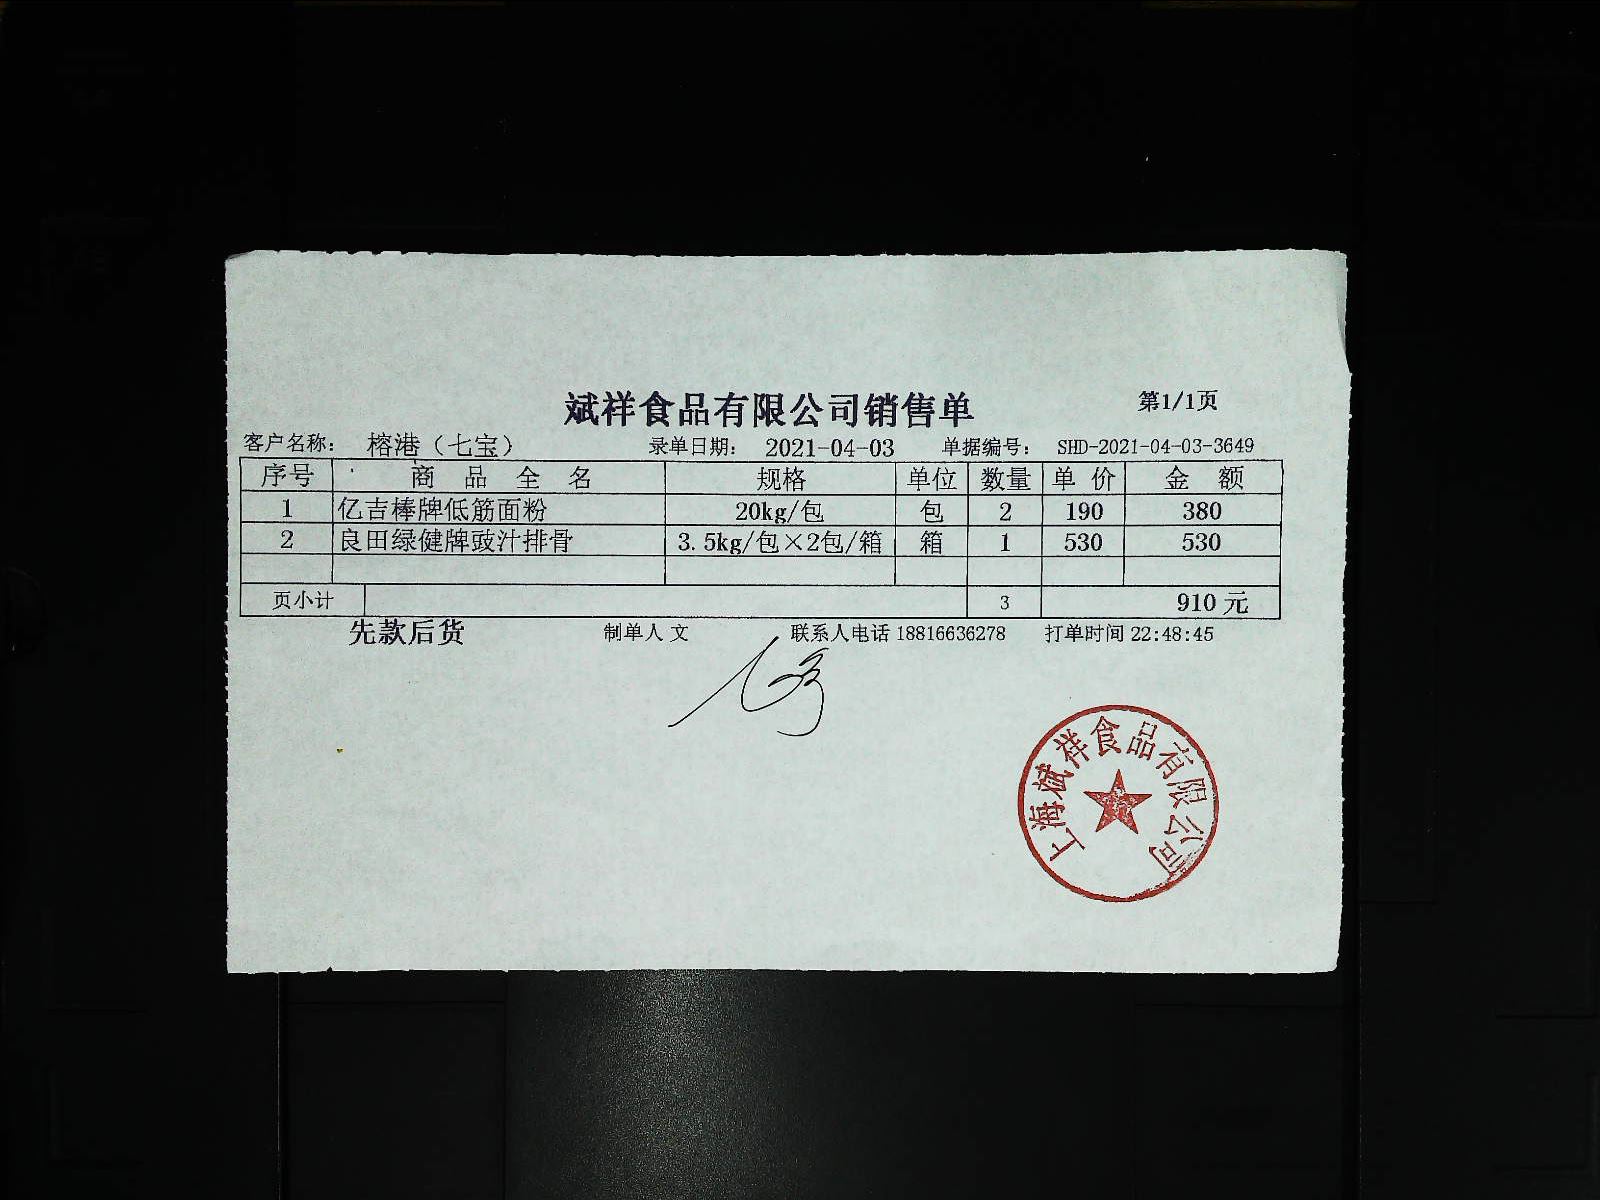 斌祥食品有限公司销售单 第1/1页
客户名称: 榕港（七宝） 录单日期: 2021-04-03 单据编号: SHD-2021-04-03-3649
序号 商品全名 规格 单位 数量 单价 金额
1 亿吉棒牌低筋面粉 20kg/包 包 2 190 380
2 良田绿健牌豉汁排骨 3.5kg/包×2包/箱 箱 1 530 530
页小计 3 910元
先款后货 制单人 文 联系人电话 18816636278 打单时间 22:48:45
上海斌祥食品有限公司